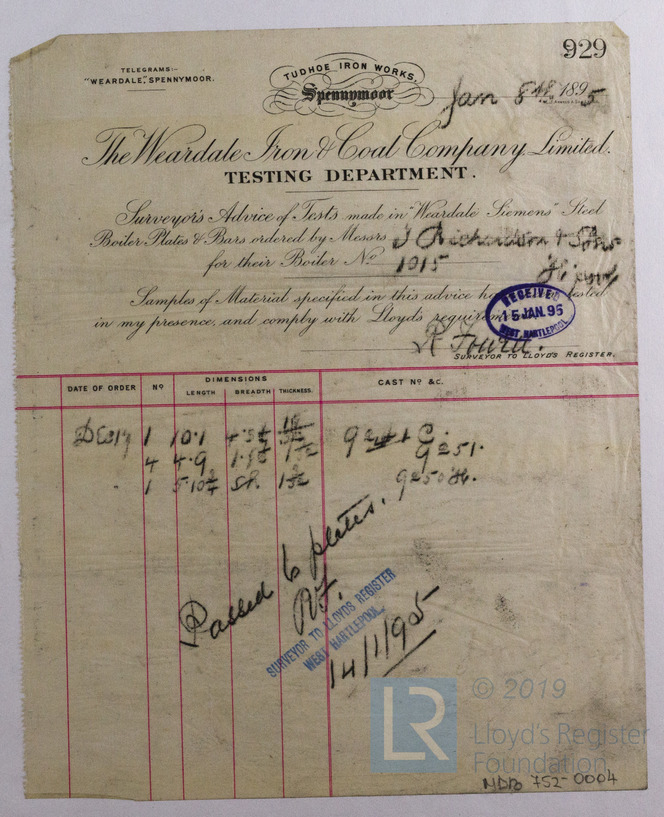 929
TELEGRAMS:-
"WEARDALE", SPENNYMOOR.
TUDHOE IRON WORKS,
Spennymoor
Jan 8th 1895
The Weardale Iron & Coal Company, Limited.
TESTING DEPARTMENT.
Surveyor's Advice of Tests made in "Weardale Siemens" Steel
Boiler Plates & Bars ordered by Messrs T Richardson & Sons
for their Boiler No 1915
Samples of Material specified in this advice tested
in my presence, and comply with Lloyd's
RECEIVED
15 JAN. 95
WEST HARTLEPOOL
SURVEYOR TO LLOYD'S REGISTER.
DATE OF ORDER No DIMENSIONS CAST No &C.
LENGTH BREADTH THICKNESS.
Dec 17 1 10.1
4 4.9 9251.
1
Passed 6 plates.
RF.
SURVEYOR TO LLOYDS REGISTER
WEST HARTLEPOOL
14/1/95
LR © 2019
Lloyd's Register
Foundation
752-0004